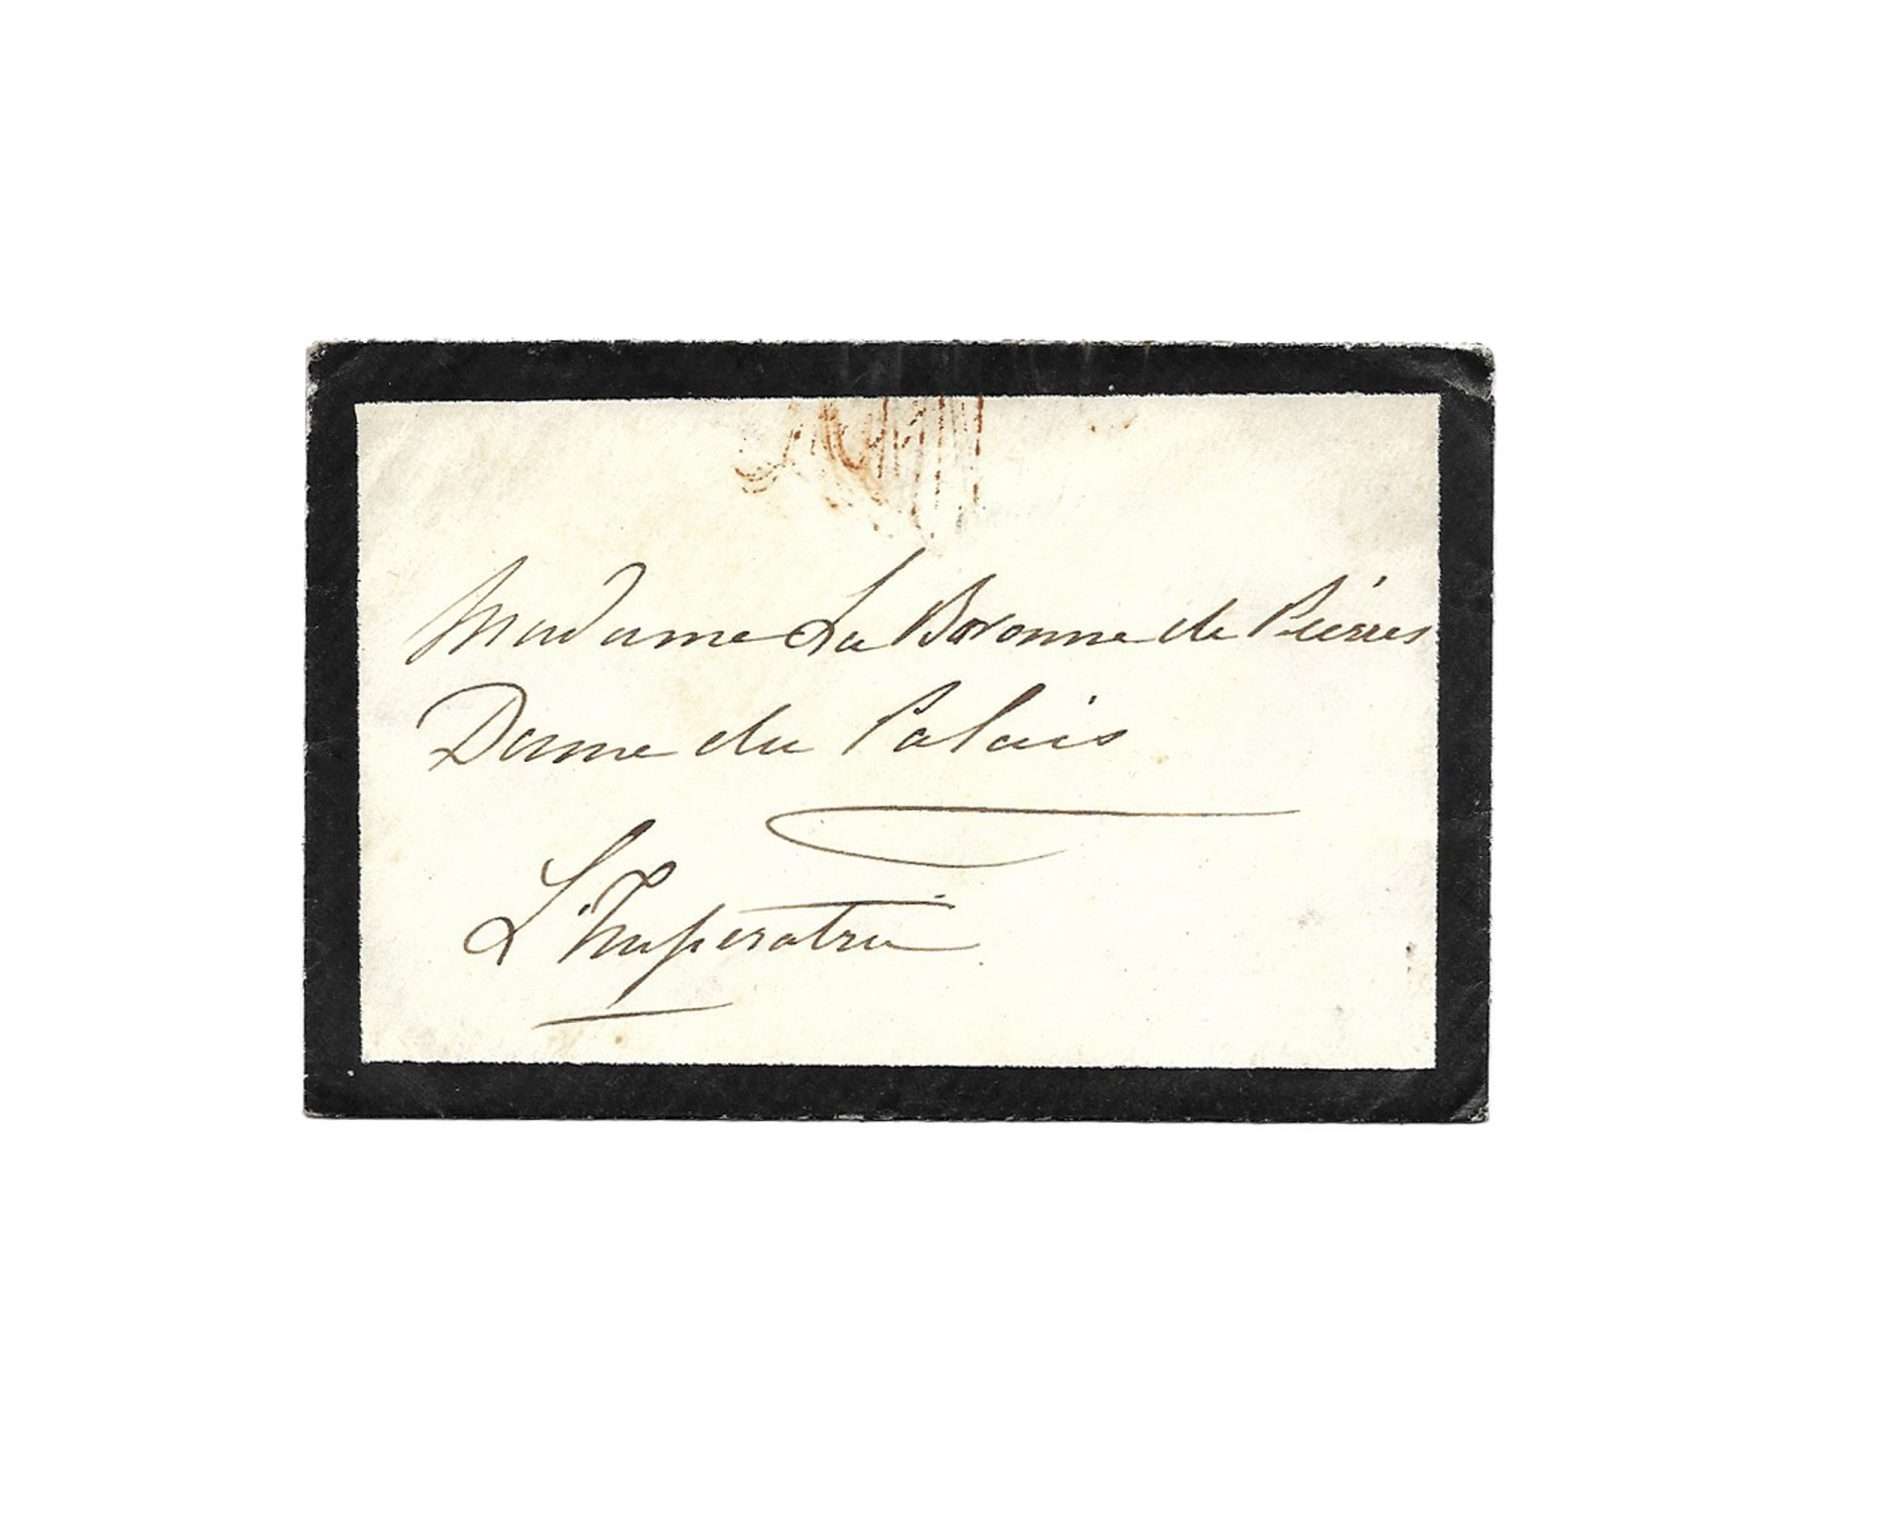 Madame La Baronne de Pierres
Dame du Palais
L'Imperatrice